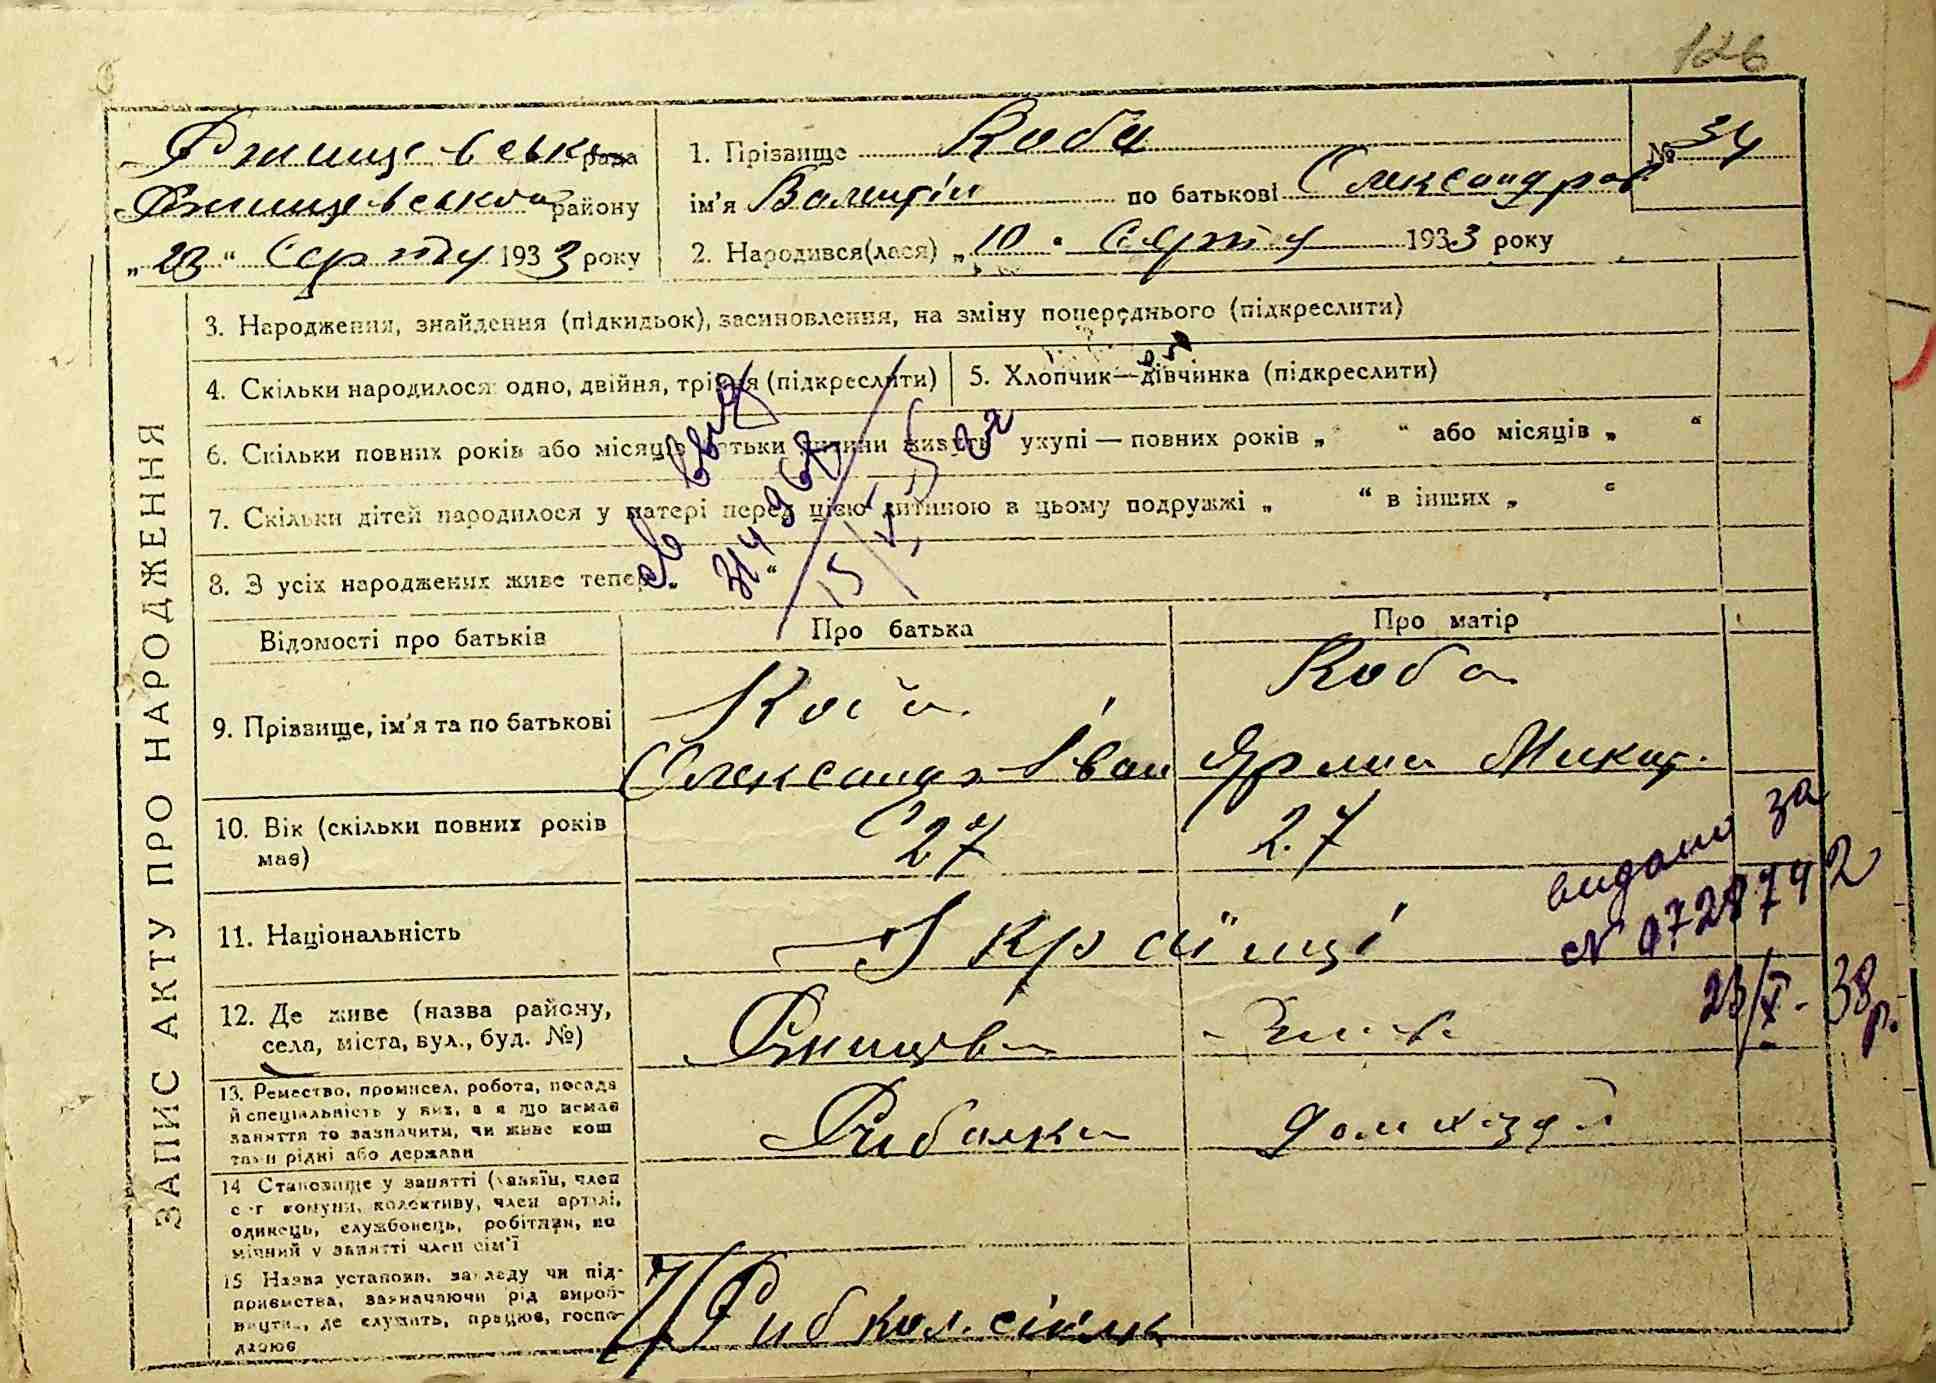 126
Ржищевська рада
Ржищевського району
„23“ Серпня 1933 року
1. Прізвище Коба
№ 34
ім'я Валентін по батькові Олександров
2. Народився(лася) „10“ Серпня 1933 року
ЗАПИС АКТУ ПРО НАРОДЖЕННЯ
3. Народження, знайдення (підкидьок), засиновлення, на зміну попереднього (підкреслити)
4. Скільки народилося: одно, двійня, трійня (підкреслити)
5. Хлопчик—дівчинка (підкреслити)
6. Скільки повних років або місяців батьки дитини живуть укупі — повних років „ “ або місяців „ “
7. Скільки дітей народилося у матері перед цією дитиною в цьому подружжі „ “ в інших „ “
8. З усіх народжених живе тепер „ “
Відомості про батьків
Про батька
Про матір
9. Прізвище, ім'я та по батькові
Коба
Олександр Іван
Коба
Микит.
10. Вік (скільки повних років має)
27
27
видано за
№ 0728742
23/X-38 р.
11. Національність
Українці
12. Де живе (назва району,
села, міста, вул., буд. №)
Ржищів
13. Ремество, промисел, робота, посада
й спеціальність у них, а я що немає
заняття то зазначити, чи живе кош
тами рідні або держави
Рибалка
Домхазяй
14 Становище у занятті (хазяїн, член
с-г комуни, колективу, член артілі,
одинець, службовець, робітник, по
мічний у занятті член сім'ї
15 Назва установи, закладу чи під-
приємства, зазначаючи рід вироб-
ництва, де служить, працює, госпо-
дарює
Риб кол.